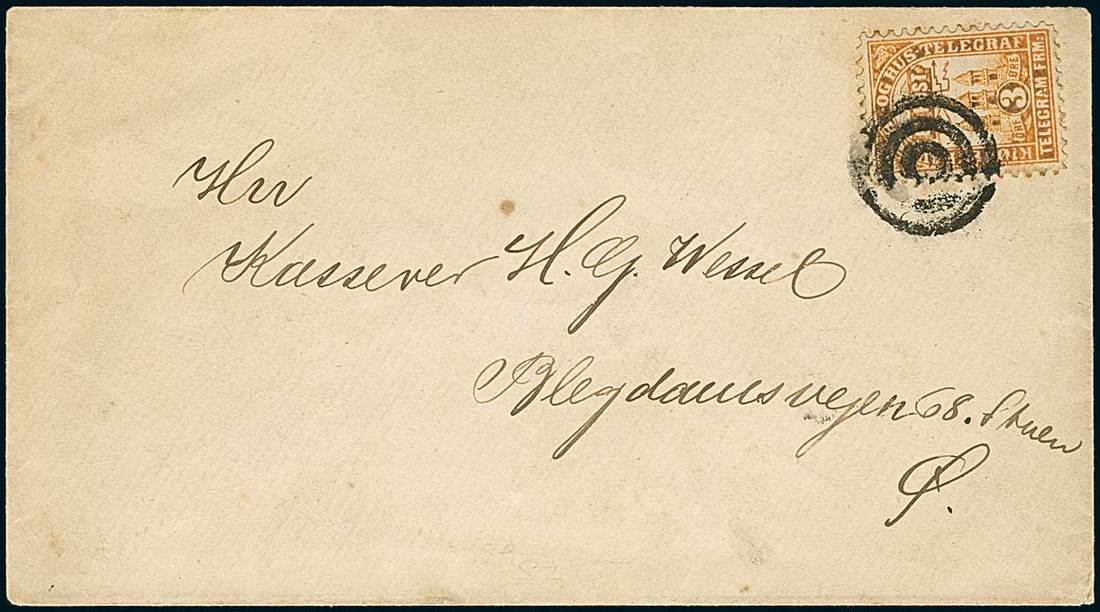 OG HUS-TELEGRAF
ØRE 3 ØRE
TELEGRAM FRM:
Hrr
Kasserer H. G. Wessel
Blegdamsvejen 68. Stuen
Ø.